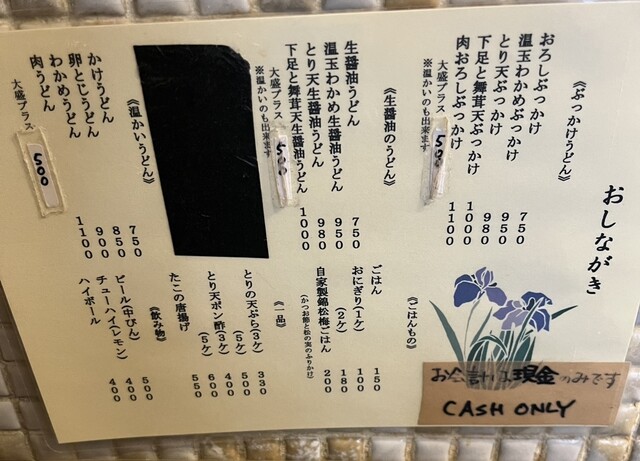 おしながき
《ぶっかけうどん》
おろしぶっかけ 750
温玉わかめぶっかけ 950
とり天ぶっかけ 980
下足と舞茸天ぶっかけ 1000
肉おろしぶっかけ 1100
大盛プラス 500
※温かいのも出来ます
《生醤油のうどん》
生醤油うどん 750
温玉わかめ生醤油うどん 950
とり天生醤油うどん 980
下足と舞茸天生醤油うどん 1000
大盛プラス 500
※温かいのも出来ます
《温かいうどん》
かけうどん 750
卵とじうどん 850
わかめうどん 900
肉うどん 1100
大盛プラス 500
《ごはんもの》
ごはん 150
おにぎり(1ケ) 100
(2ケ) 180
自家製錦松梅ごはん 200
(かつお節と松の実のふりかけ)
《一品》
とりの天ぷら(3ケ) 330
(5ケ) 500
とり天ポン酢(3ケ) 400
(5ケ) 600
たこの唐揚げ 550
《飲み物》
ビール(中びん) 500
チューハイ(レモン) 400
ハイボール 400
お会計は現金のみです
CASH ONLY